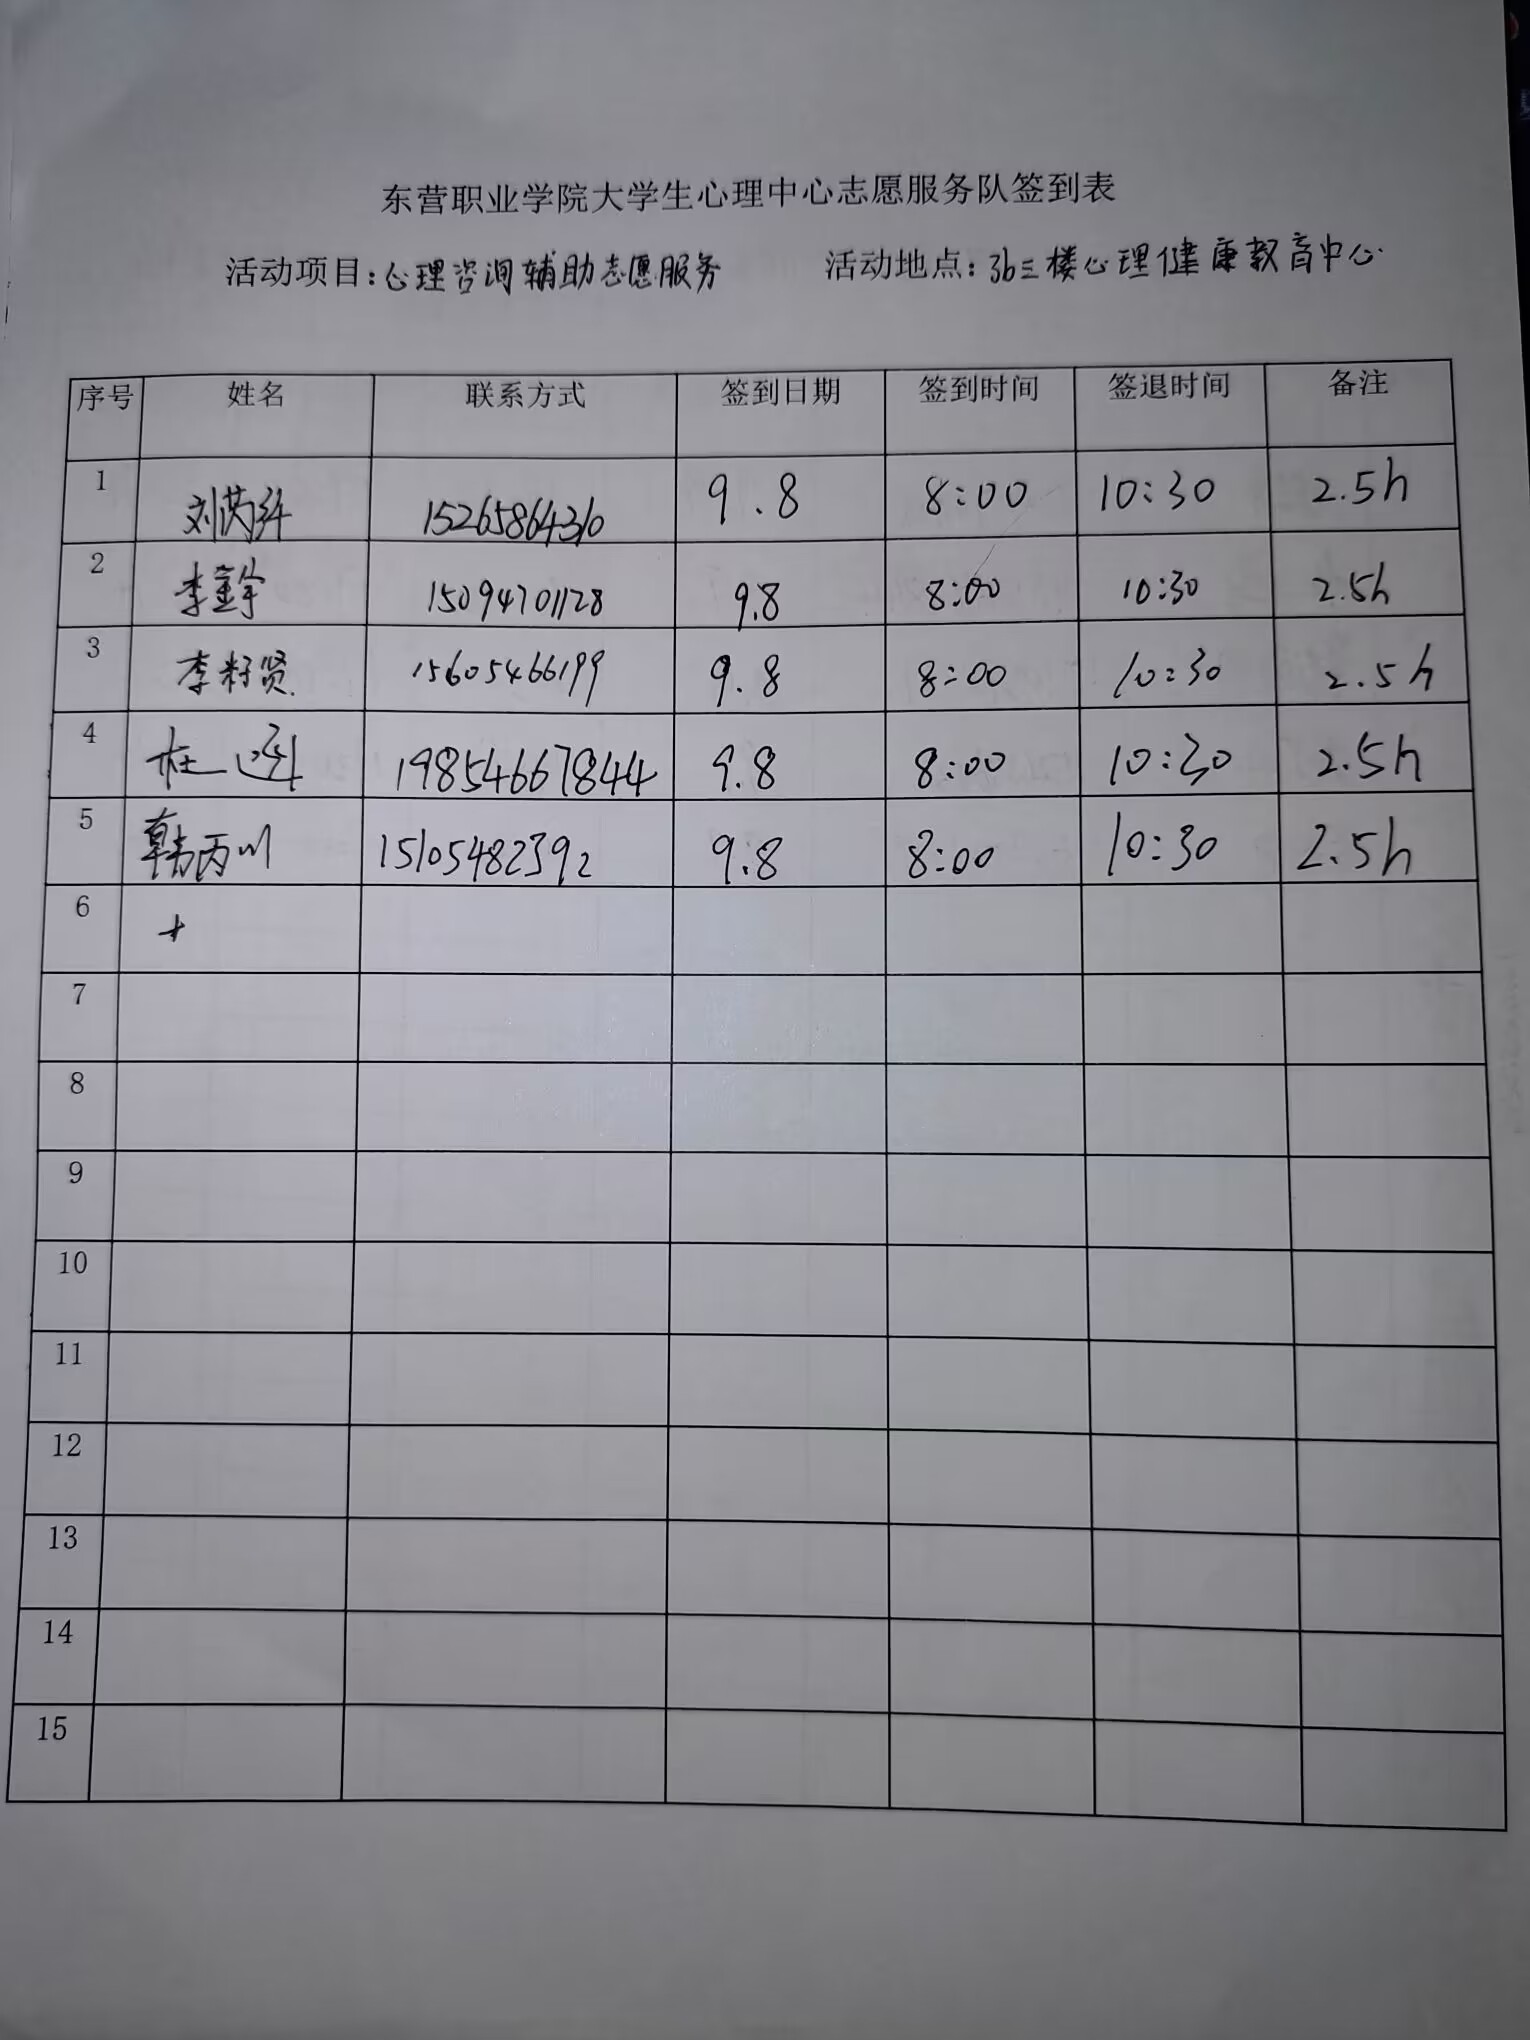 东营职业学院大学生心理中心志愿服务队签到表
活动项目:心理咨询辅助志愿服务 活动地点:3b三楼心理健康教育中心
序号 姓名 联系方式 签到日期 签到时间 签退时间 备注
1 刘芮 15265864310 9.8 8:00 10:30 2.5h
2 李童宇 15094701128 9.8 8:00 10:30 2.5h
3 李籽贤 15605466199 9.8 8:00 10:30 2.5h
4 杜 19854667844 9.8 8:00 10:30 2.5h
5 韩丙川 15105482392 9.8 8:00 10:30 2.5h
6
7
8
9
10
11
12
13
14
15